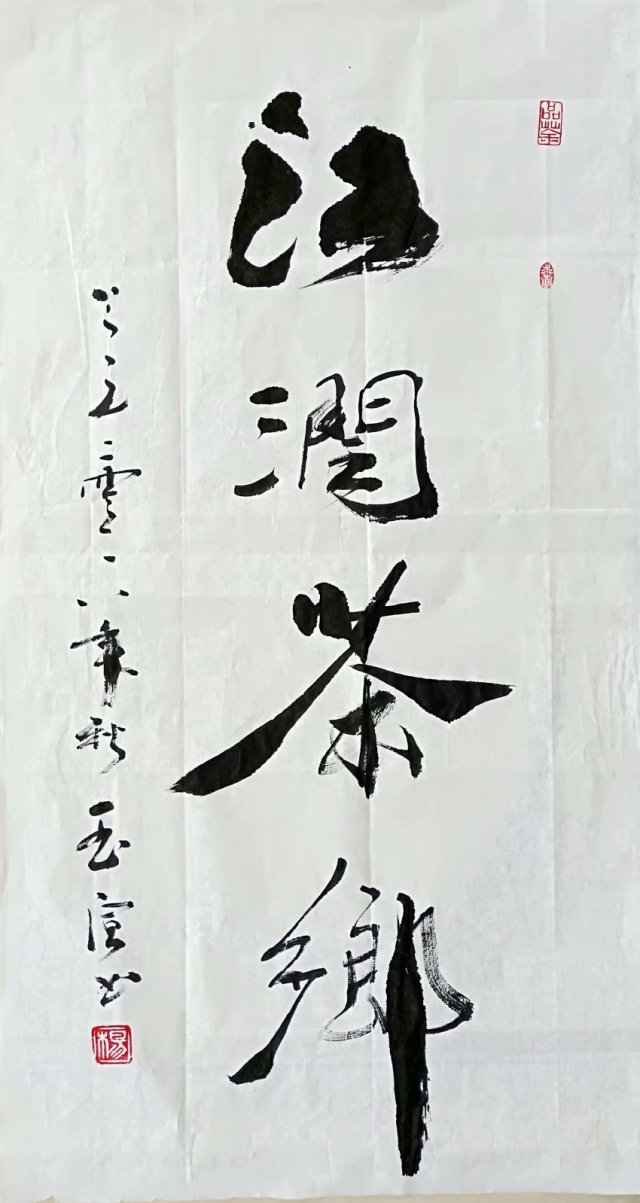 江潤茶鄉
公元二零一八年秋玉宣书
楊